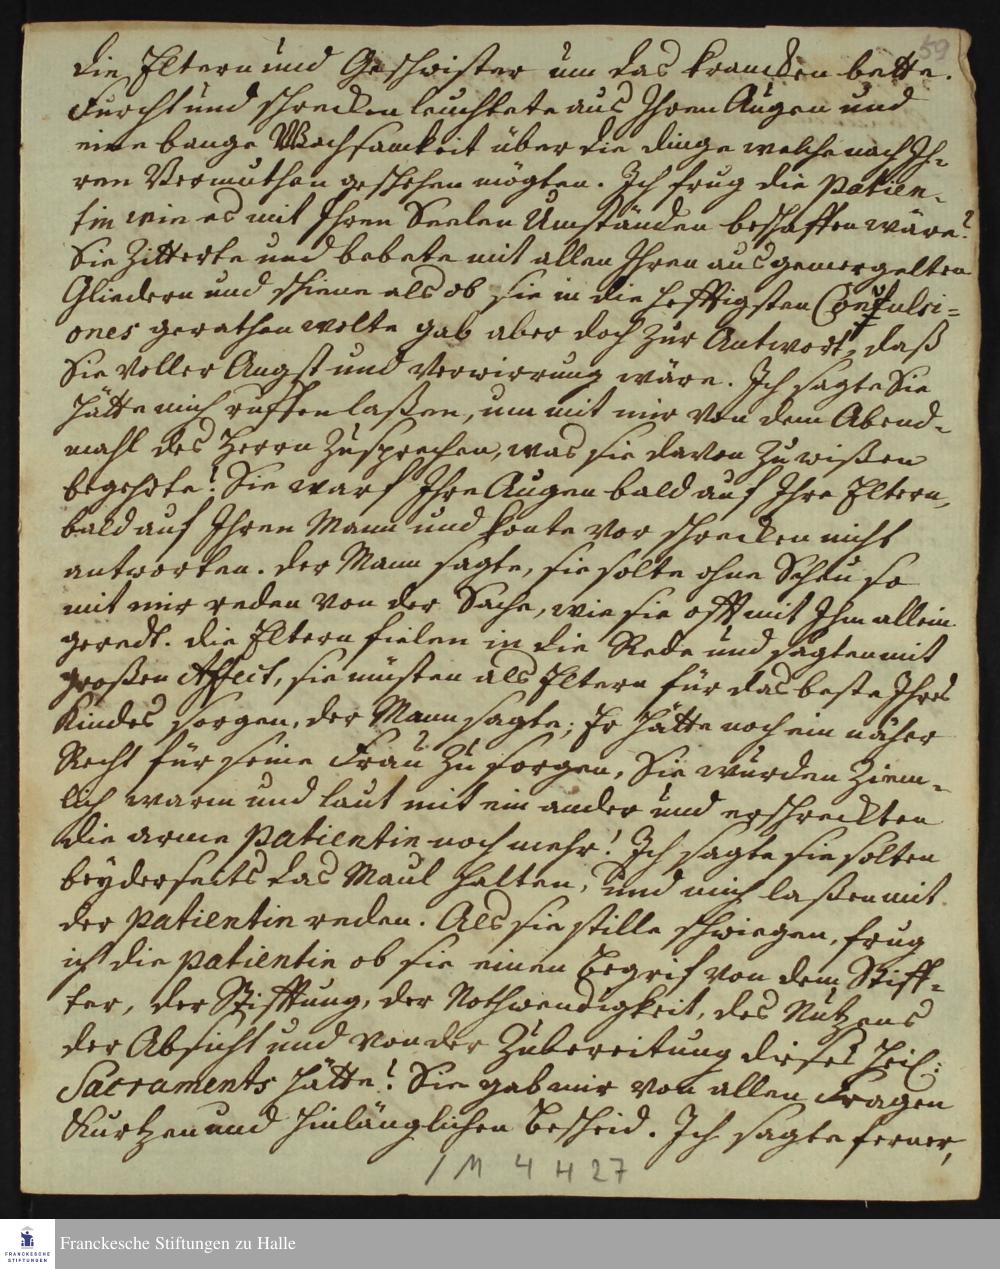 59
die Eltern und Geschwister um das krancken bette.
Furcht und schrecken leuchtete aus Ihren Augen und
eine bange Wachsamkeit über die dinge welche nach Ih-
ren Vermuthen geschehen mögten. Ich frug die Patien-
tin wie es mit Ihren Seelen Umständen beschaffen wäre?
Sie Zitterte und bebete mit allen Ihren ausgemergelten
Gliedern und schiene als ob sie in die hefftigsten Convulsi-
ones gerathen wolte gab aber doch zur Antwort, daß
Sie voller Angst und Verwirrung wäre. Ich sagte Sie
hätte mich ruffen laßen, um mit mir von dem Abend-
mahl des Herrn zu sprechen, was sie davon zu wißen
begehrte? Sie warf Ihre Augen bald auf Ihre Eltern,
bald auf Ihren Mann und konte vor schrecken nicht
antworten. der Mann sagte, sie solte ohne Scheu so
mit mir reden von der Sache, wie sie offt mit Ihm allein
geredt. die Eltern fielen in die Rede und sagten mit
großen Affect, sie müsten als Eltern für das beste Ihres
Kindes sorgen, der Mann sagte; Er hätte noch ein näher
Recht für seine Frau zu sorgen, Sie wurden Ziem-
lich warm und laut mit ein ander und erschreckten
die arme Patientin noch mehr! Ich sagte sie solten
beyderseits das Maul halten, und mich laßen mit
der Patientin reden. Als sie stille schwiegen, frug
ich die Patientin ob sie einen Begrif von dem Stiff-
ter, der Stifftung, der Nothwendigkeit, des Nutzens
der Absicht und von der Zubereitung dieses heil:
Sacraments hätte? Sie gab mir von allen Fragen
Kurtzen und hinlänglichen Bescheid. Ich sagte ferner,
/ M 4 H 27
FRANCKESCHE
STIFTUNGEN
Franckesche Stiftungen zu Halle